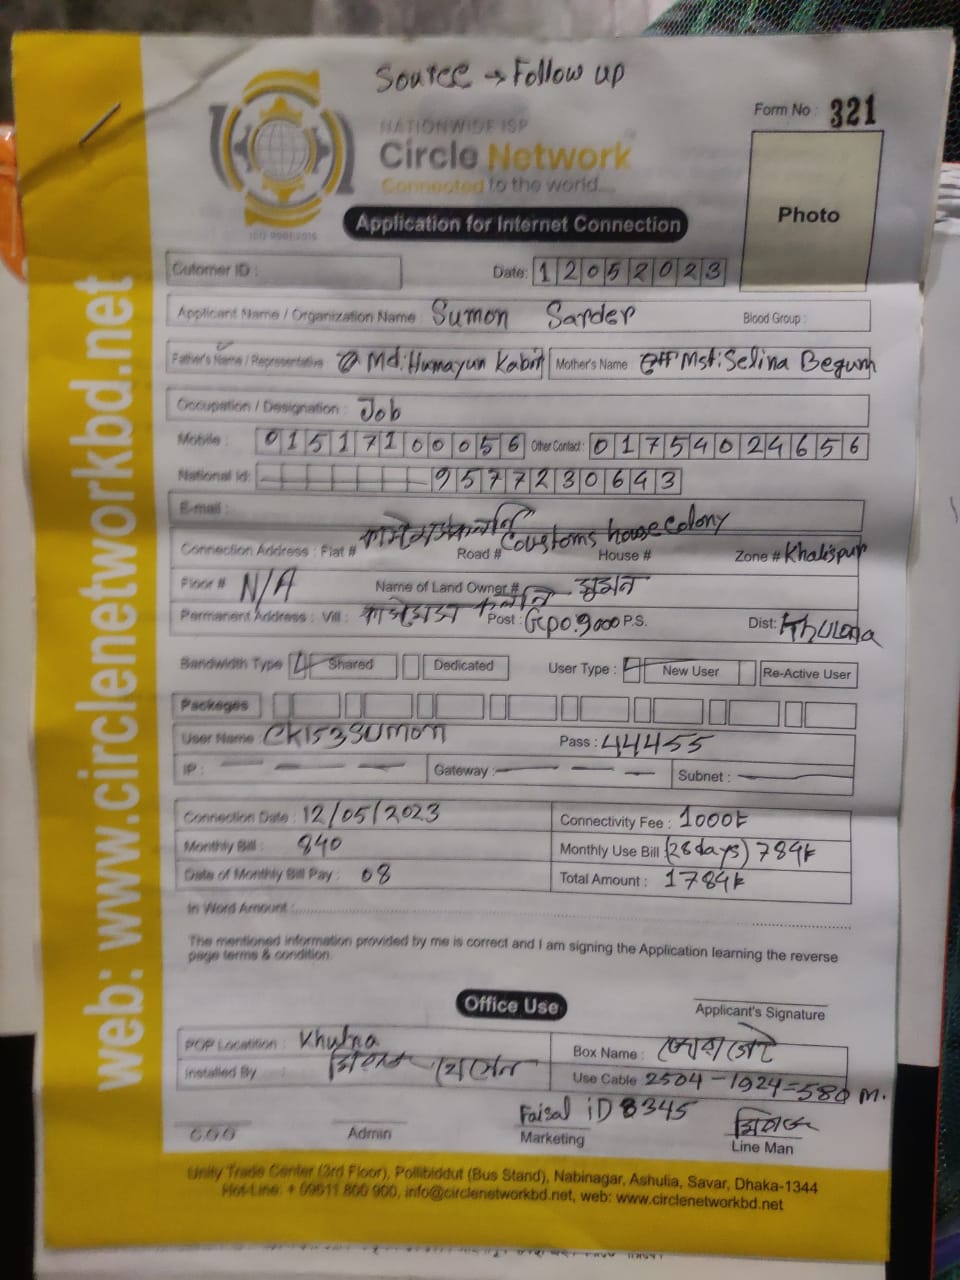 Source → Follow up
Form No : 321
NATIONWIDE ISP
Circle Network
Connected to the world....
ISO 9001:2015
Photo
Application for Internet Connection
Cutomer ID :
Date: 12052023
Applicant Name / Organization Name : Sumon Sarder
Blood Group :
Father's Name / Representative Md: Humayun Kabir
Mother's Name Mst: Selina Begum
Occupation / Designation : Job
Mobile : 01517100056
Other Contact : 01754024656
National Id: 9577230643
E-mail :
Connection Address : Flat # Road # Coustoms house colony House # Zone # Khalispur
Floor # N/A
Name of Land Owner # সুমন
Permanent Address : Vill : Post : Gpo.9000 P.S. Dist: Khulona
Bandwidth Type Shared Dedicated
User Type : New User Re-Active User
Packeges
User Name : CK1533Sumon
Pass : 44455
IP :
Gateway :
Subnet :
Connection Date : 12/05/2023
Connectivity Fee : 1000৳
Monthly Bill : 840
Monthly Use Bill (28 days) 784৳
Date of Monthly Bill Pay : 08
Total Amount : 1784৳
In Word Amount :
The mentioned information provided by me is correct and I am signing the Application learning the reverse
page terms & condition.
Office Use
Applicant's Signature
POP Locatition : Khulna
Box Name :
Installed By :
Use Cable 2504 - 1924 = 580 m.
Faisal iD 8345
Admin
Marketing
Line Man
Unity Trade Center (3rd Floor), Pollibiddut (Bus Stand), Nabinagar, Ashulia, Savar, Dhaka-1344
Hot-Line: + 09611 800 900, info@circlenetworkbd.net, web: www.circlenetworkbd.net
web: www.circlenetworkbd.net